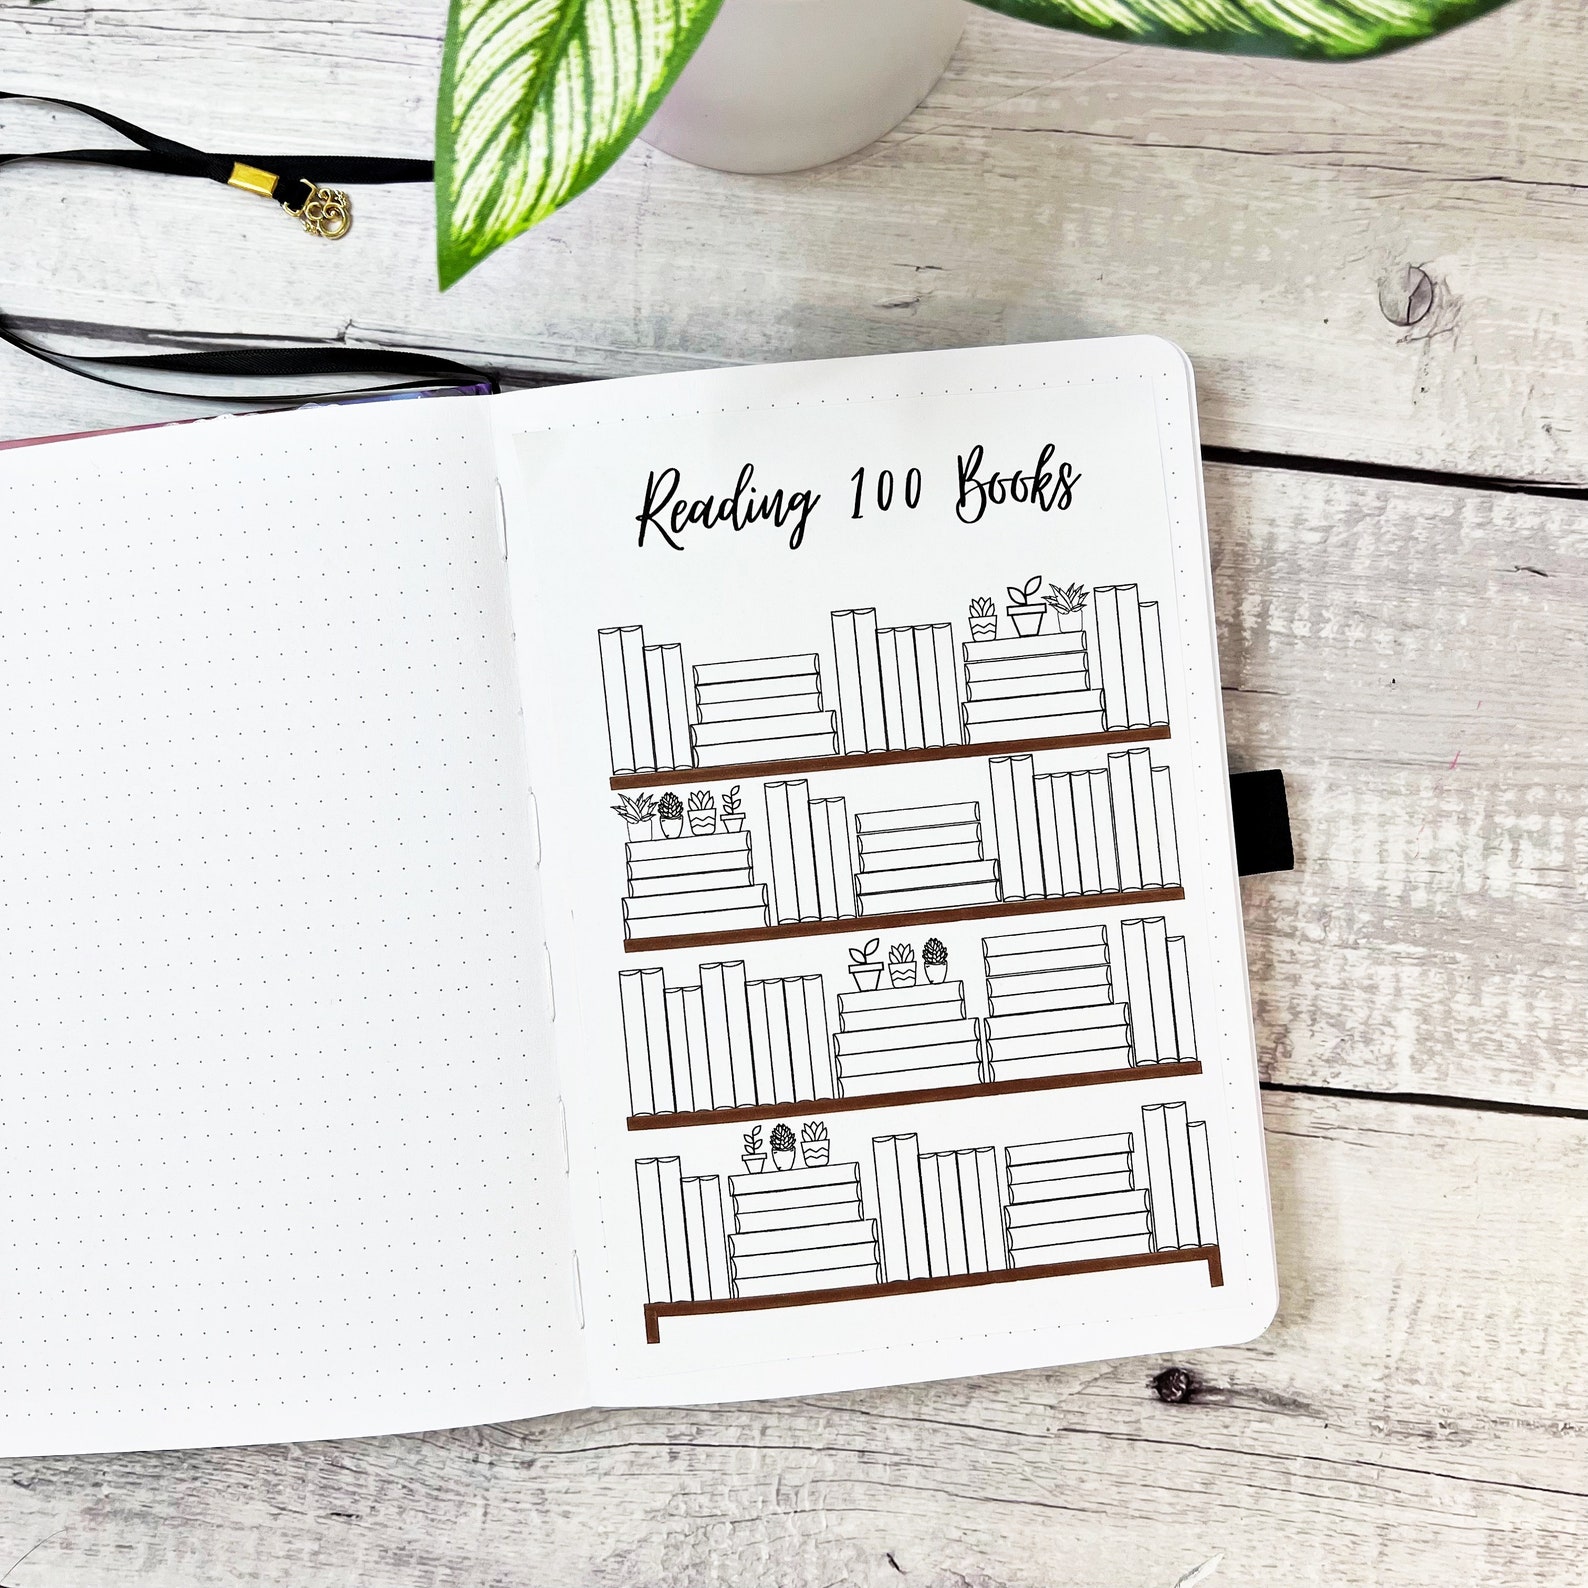 Reading 100 Books